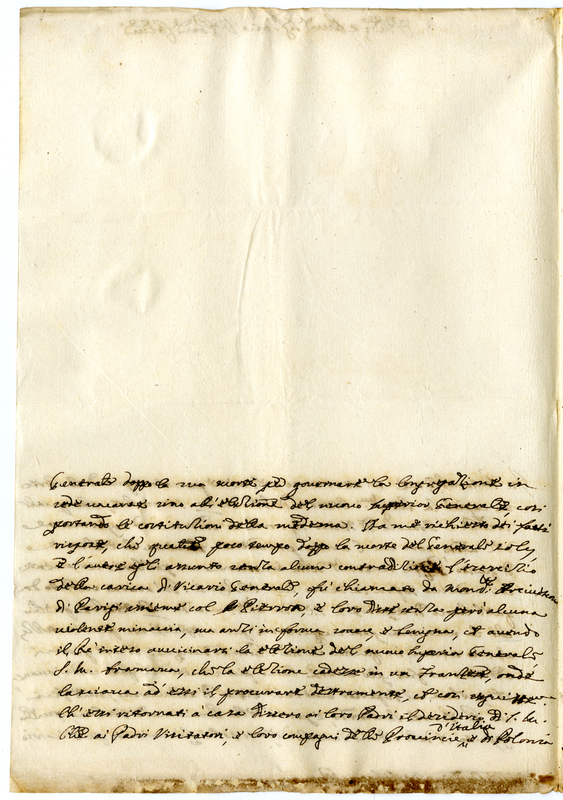 Generale doppo la sua morte per governare la Congregazione in
sede vacante sino all'elezione del nuovo Superior Generale, così
portando le costituzioni della medema. Da me richiesto dei fatti
rispose, che poco tempo doppo la morte del Generale Joly
e l'havere egli assunto senza alcuna contradizione l'esercitio
della carica di Vicario Generale, fù chiamato da Mons.
di Parigi insieme col Pierron, e loro disse senza però alcuna
violenta minaccia, ma anzi in forma e benigna, et avendo
il Rè inteso avvicinarsi la elezione del nuovo Superior Generale
S. M. bramava, che la elezione cadesse in un Francese, onde
lasciava ad essi il procurare destramente, et così
Ch'essi ritornati à casa dissero ai loro Padri il desiderio di S. M.
Che ai Padri Visitatori, e loro compagni delle Provincie d'Italia e di Polonia